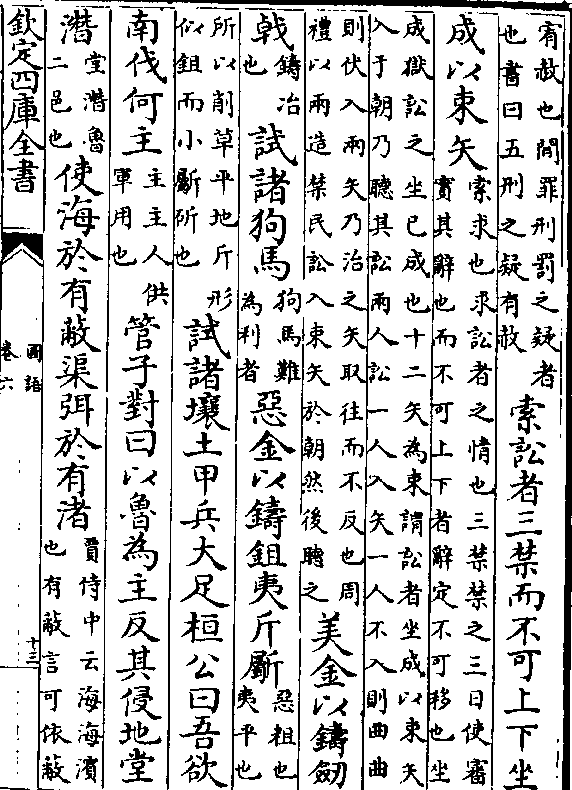 宥赦也閒罪刑罰之疑者
也書曰五刑之疑有赦
索訟者三禁而不可上下坐
成以束矢
索求也求訟者之情也三禁禁之三日使審
實其辭也而不可上下者辭定不可移也坐
成獄訟之坐已成也十二矢為束謂訟者坐成以束矢
入于朝乃聽其訟兩人訟一人入矢一人不入則曲曲
則伏入兩矢乃治之矢取往而不反也周
禮以兩造禁民訟入束矢於朝然後聽之
美金以鑄劒
戟
鑄冶
也
試諸狗馬
狗馬難
為利者
惡金以鑄鉏夷斤斸
惡粗也
夷平也
所以削草平地斤形
似鉏而小斸斫也
試諸壤土甲兵大足桓公曰吾欲
南伐何主
主主人供
軍用也
管子對曰以魯為主反其侵地堂
潛
堂潛魯
二邑也
使海於有蔽渠弭於有渚
賈侍中云海海濱
也有蔽言可依蔽
欽定四庫全書
國語
卷六
十三